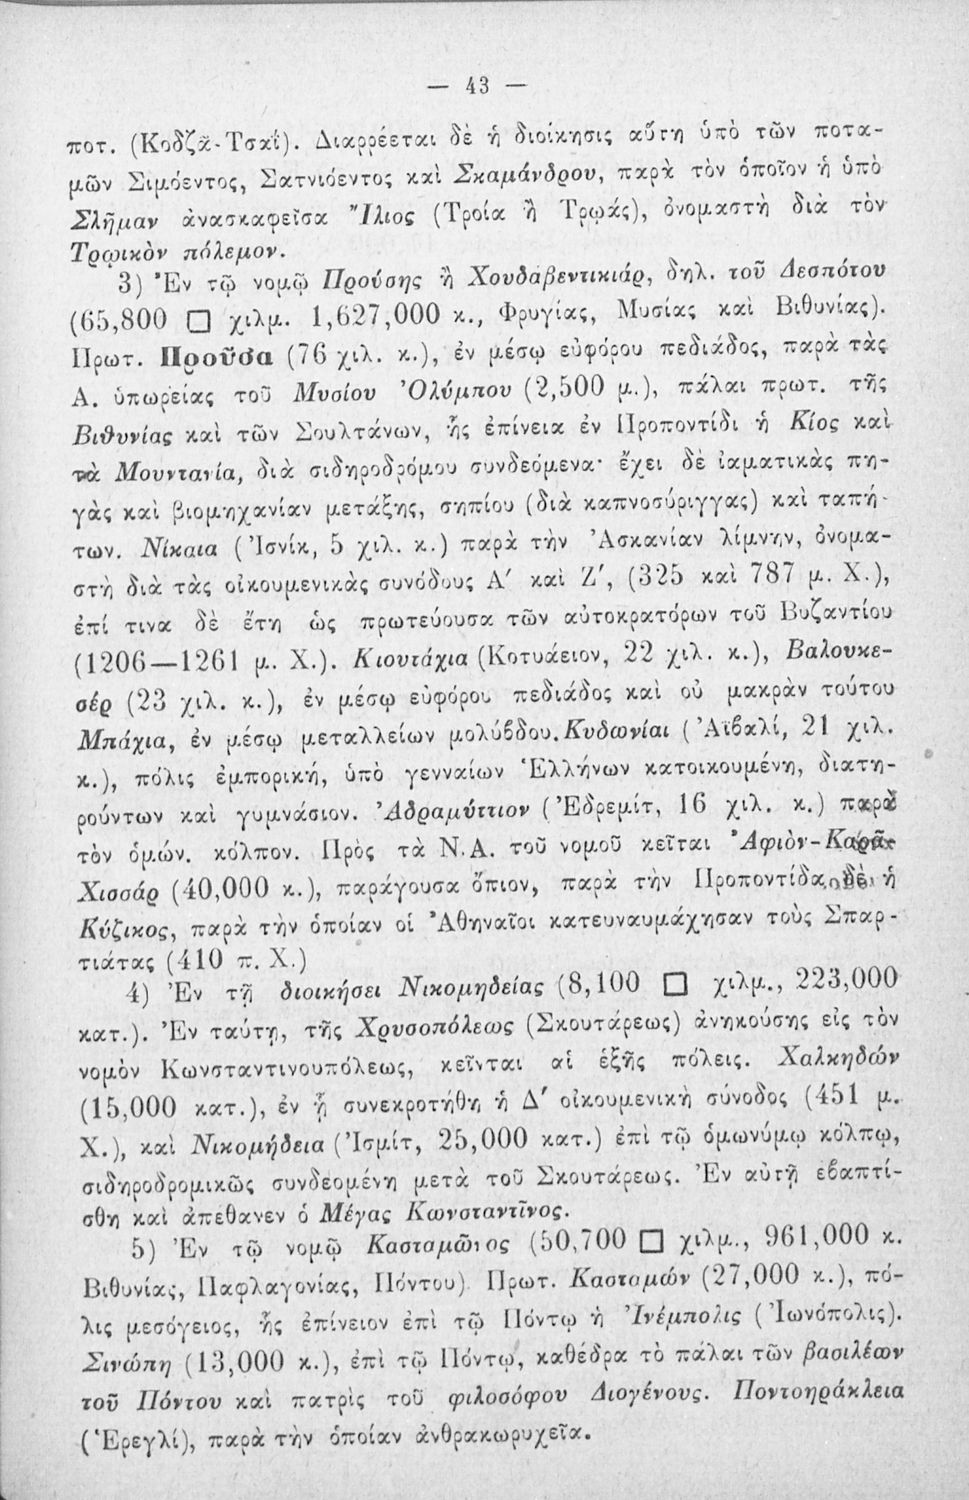 — 43 —
ποτ. (Κοδζᾶ-Τσαΐ). Διαρρέεται δὲ ἡ διοίκησις αὕτη ὑπὸ τῶν ποτα-
μῶν Σιμόεντος, Σατνιόεντος καὶ Σκαμάνδρου, παρὰ τὸν ὁποῖον ἡ ὑπὸ
Σλῆμαν ἀνασκαφεῖσα Ἴλιος (Τροία ἢ Τρῳάς), ὀνομαστὴ διὰ τὸν
Τρῳικὸν πόλεμον.
3) Ἐν τῷ νομῷ Προύσης ἢ Χουδαβεντικιάρ, δηλ. τοῦ Δεσπότου
(65,800 □ χιλμ. 1,627,000 κ., Φρυγίας, Μυσίας καὶ Βιθυνίας).
Πρωτ. Προῦσα (76 χιλ. κ.), ἐν μέσῳ εὐφόρου πεδιάδος, παρὰ τὰς
Α. ὑπωρείας τοῦ Μυσίου Ὀλύμπου (2,500 μ.), πάλαι πρωτ. τῆς
Βιθυνίας καὶ τῶν Σουλτάνων, ἧς ἐπίνεια ἐν Προποντίδι ἡ Κίος καὶ
τὰ Μουντανία, διὰ σιδηροδρόμου συνδεόμενα· ἔχει δὲ ἰαματικὰς πη-
γὰς καὶ βιομηχανίαν μετάξης, σηπίου (διὰ καπνοσύριγγας) καὶ ταπή-
των. Νίκαια (Ἰσνίκ, 5 χιλ. κ.) παρὰ τὴν Ἀσκανίαν λίμνην, ὀνομα-
στὴ διὰ τὰς οἰκουμενικὰς συνόδους Α΄ καὶ Ζ΄, (325 καὶ 787 μ. Χ.),
ἐπί τινα δὲ ἔτη ὡς πρωτεύουσα τῶν αὐτοκρατόρων τοῦ Βυζαντίου
(1206—1261 μ. Χ.). Κιουτάχια (Κοτυάειον, 22 χιλ. κ.), Βαλουκε-
σέρ (23 χιλ. κ.), ἐν μέσῳ εὐφόρου πεδιάδος καὶ οὐ μακρὰν τούτου
Μπάχια, ἐν μέσῳ μεταλλείων μολύβδου. Κυδωνίαι (Ἀϊβαλί, 21 χιλ.
κ.), πόλις ἐμπορική, ὑπὸ γενναίων Ἑλλήνων κατοικουμένη, διατη-
ρούντων καὶ γυμνάσιον. Ἀδραμύττιον (Ἐδρεμίτ, 16 χιλ. κ.) παρὰ
τὸν ὁμών. κόλπον. Πρὸς τὰ Ν.Α. τοῦ νομοῦ κεῖται Ἀφιὸν-Καρᾶ-
Χισσάρ (40,000 κ.), παράγουσα ὄπιον, παρὰ τὴν Προποντίδα δὲ ἡ
Κύζικος, παρὰ τὴν ὁποίαν οἱ Ἀθηναῖοι κατευναυμάχησαν τοὺς Σπαρ-
τιάτας (410 π. Χ.)
4) Ἐν τῇ διοικήσει Νικομηδείας (8,100 □ χιλμ., 223,000
κατ.). Ἐν ταύτῃ, τῆς Χρυσοπόλεως (Σκουτάρεως) ἀνηκούσης εἰς τὸν
νομὸν Κωνσταντινουπόλεως, κεῖνται αἱ ἑξῆς πόλεις. Χαλκηδών
(15,000 κατ.), ἐν ᾗ συνεκροτήθη ἡ Δ΄ οἰκουμενικὴ σύνοδος (451 μ.
Χ.), καὶ Νικομήδεια (Ἰσμίτ, 25,000 κατ.) ἐπὶ τῷ ὁμωνύμῳ κόλπῳ,
σιδηροδρομικῶς συνδεομένη μετὰ τοῦ Σκουτάρεως. Ἐν αὐτῇ ἐβαπτί-
σθη καὶ ἀπέθανεν ὁ Μέγας Κωνσταντῖνος.
5) Ἐν τῷ νομῷ Κασταμῶνος (50,700 □ χιλμ., 961,000 κ.
Βιθυνίας, Παφλαγονίας, Πόντου) Πρωτ. Κασταμών (27,000 κ.), πό-
λις μεσόγειος, ἧς ἐπίνειον ἐπὶ τῷ Πόντῳ ἡ Ἰνέμπολις (Ἰωνόπολις).
Σινώπη (13,000 κ.), ἐπὶ τῷ Πόντῳ, καθέδρα τὸ πάλαι τῶν βασιλέων
τοῦ Πόντου καὶ πατρὶς τοῦ φιλοσόφου Διογένους. Ποντοηράκλεια
(Ἐρεγλί), παρὰ τὴν ὁποίαν ἀνθρακωρυχεῖα.